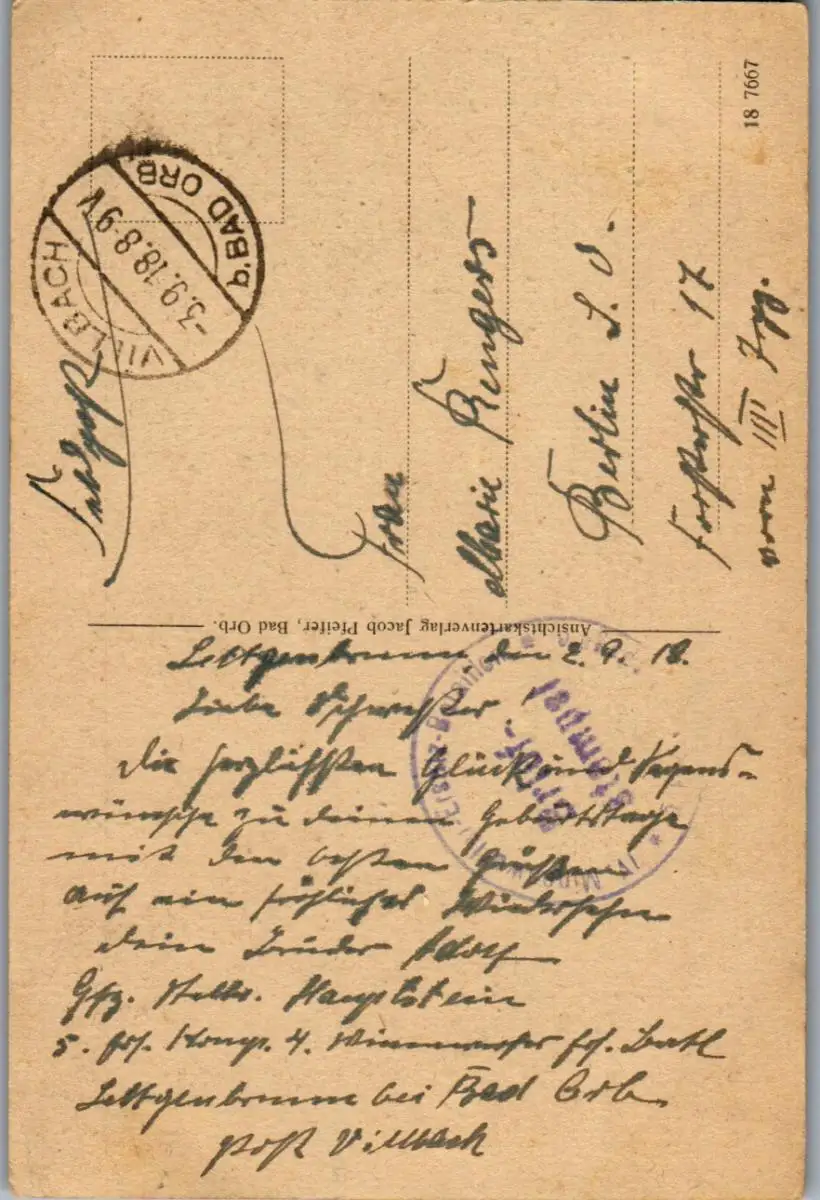 Feldpost
VILLBACH
-3.9.18.8-9V
BAD ORB
Frau
Marie Rengers
Berlin S. O.
Forsterstr 17
vorn IIII Trp.
18 7667
Ansichtskartenverlag Jacob Pfeifer, Bad Orb.
Lettgenbrunn, den 2. 9. 18.
Liebe Schwester!
Die herzlichsten Glück und Segens-
wünsche zu deinem Geburtstage
mit den besten Grüßen
auf ein fröhliches Wiedersehn
dein Bruder Adolf
Gfg. Hauptstein
5. Ers. Komp. 4. Minenwerfer Ers. Batl
Lettgenbrunn bei Bad Orb
post Villbach
Brief-
stempel